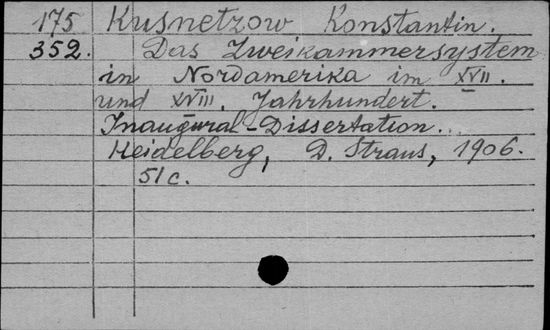 175 Kusnetzow Konstantin.
352. Das Zweikammersystem
in Nordamerika im XVII.
und XVIII. Jahrhundert.
Inaugural-Dissertation.
Heidelberg, D. Straus, 1906.
51 c.